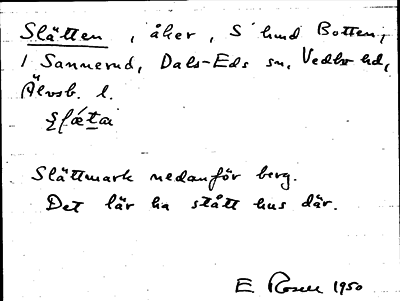 Slätten, åker, S hmd Botten,
1 Sannerud, Dals-Eds sn, Vedbo hd,
Älvsb. l.
Slättmark nedanför berg.
Det lär ha stått hus där.
E Rosell 1950